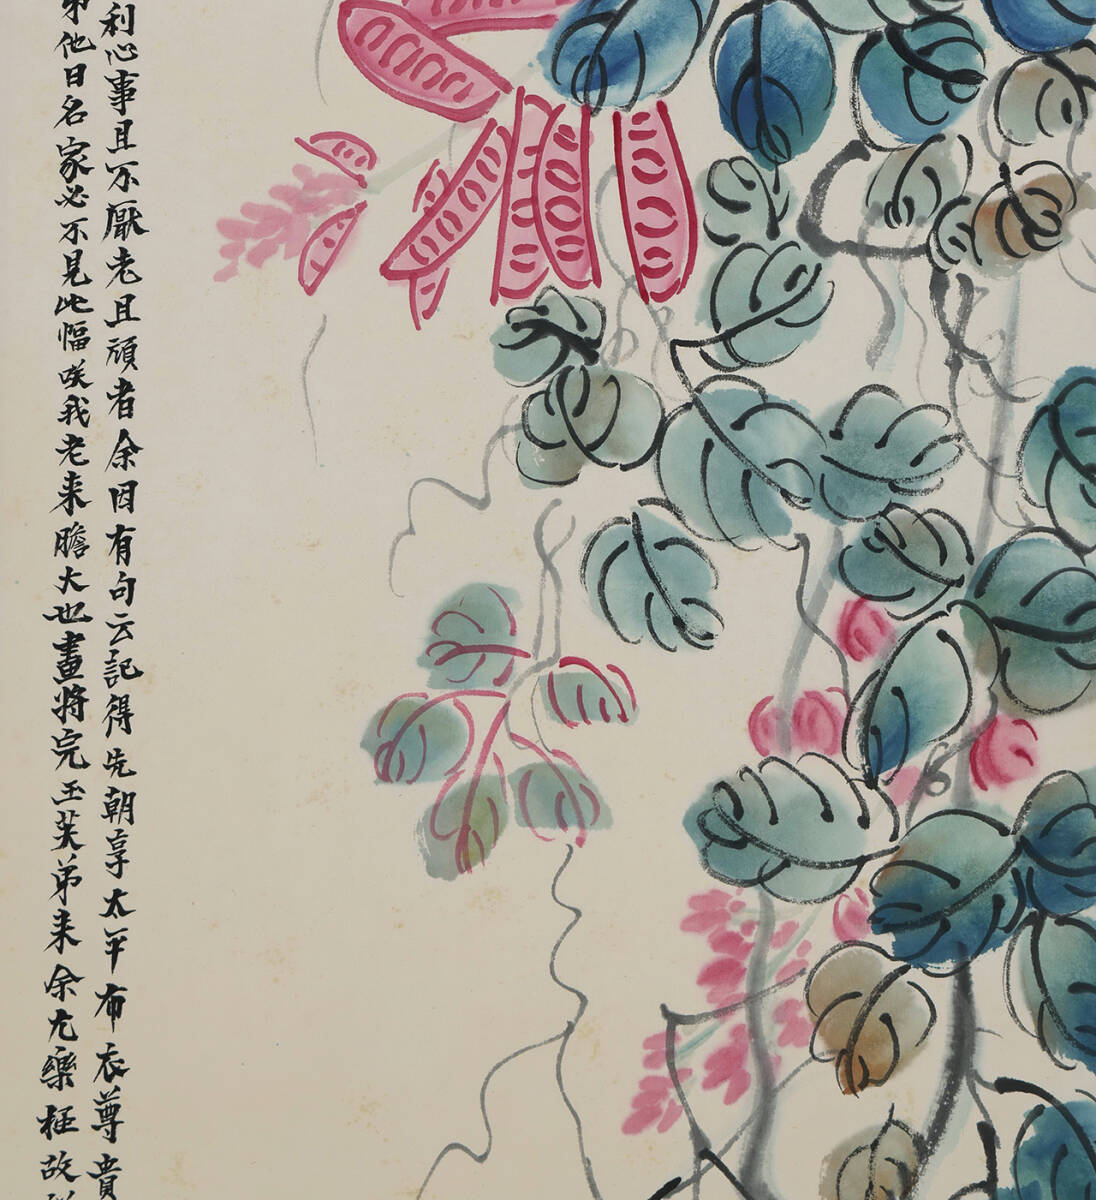 利心事且不厭老且頑者余因有句云記得先朝享太平布衣尊貴
弟他日名家必不見此幅咲我老来膽大也畫將完玉英弟来余尤樂極故